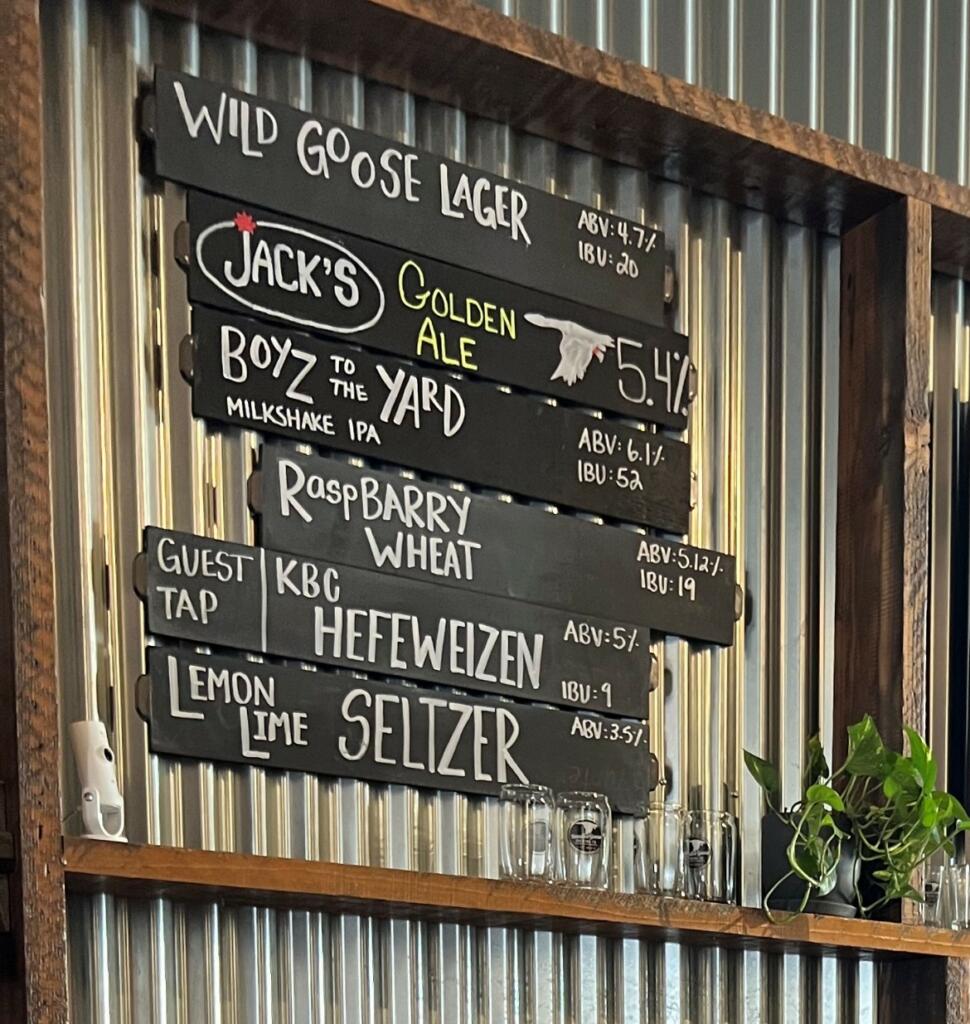 WILD GOOSE LAGER
ABV: 4.7%
IBU: 20
JACK'S
GOLDEN
ALE
5.4%
BOYZ TO THE YARD
MILKSHAKE IPA
ABV: 6.1%
IBU: 52
RaspBARRY
WHEAT
ABV: 5.12%
IBU: 19
GUEST
TAP
KBC
HEFEWEIZEN
ABV: 5%
IBU: 9
LEMON
LIME
SELTZER
ABV: 3.5%